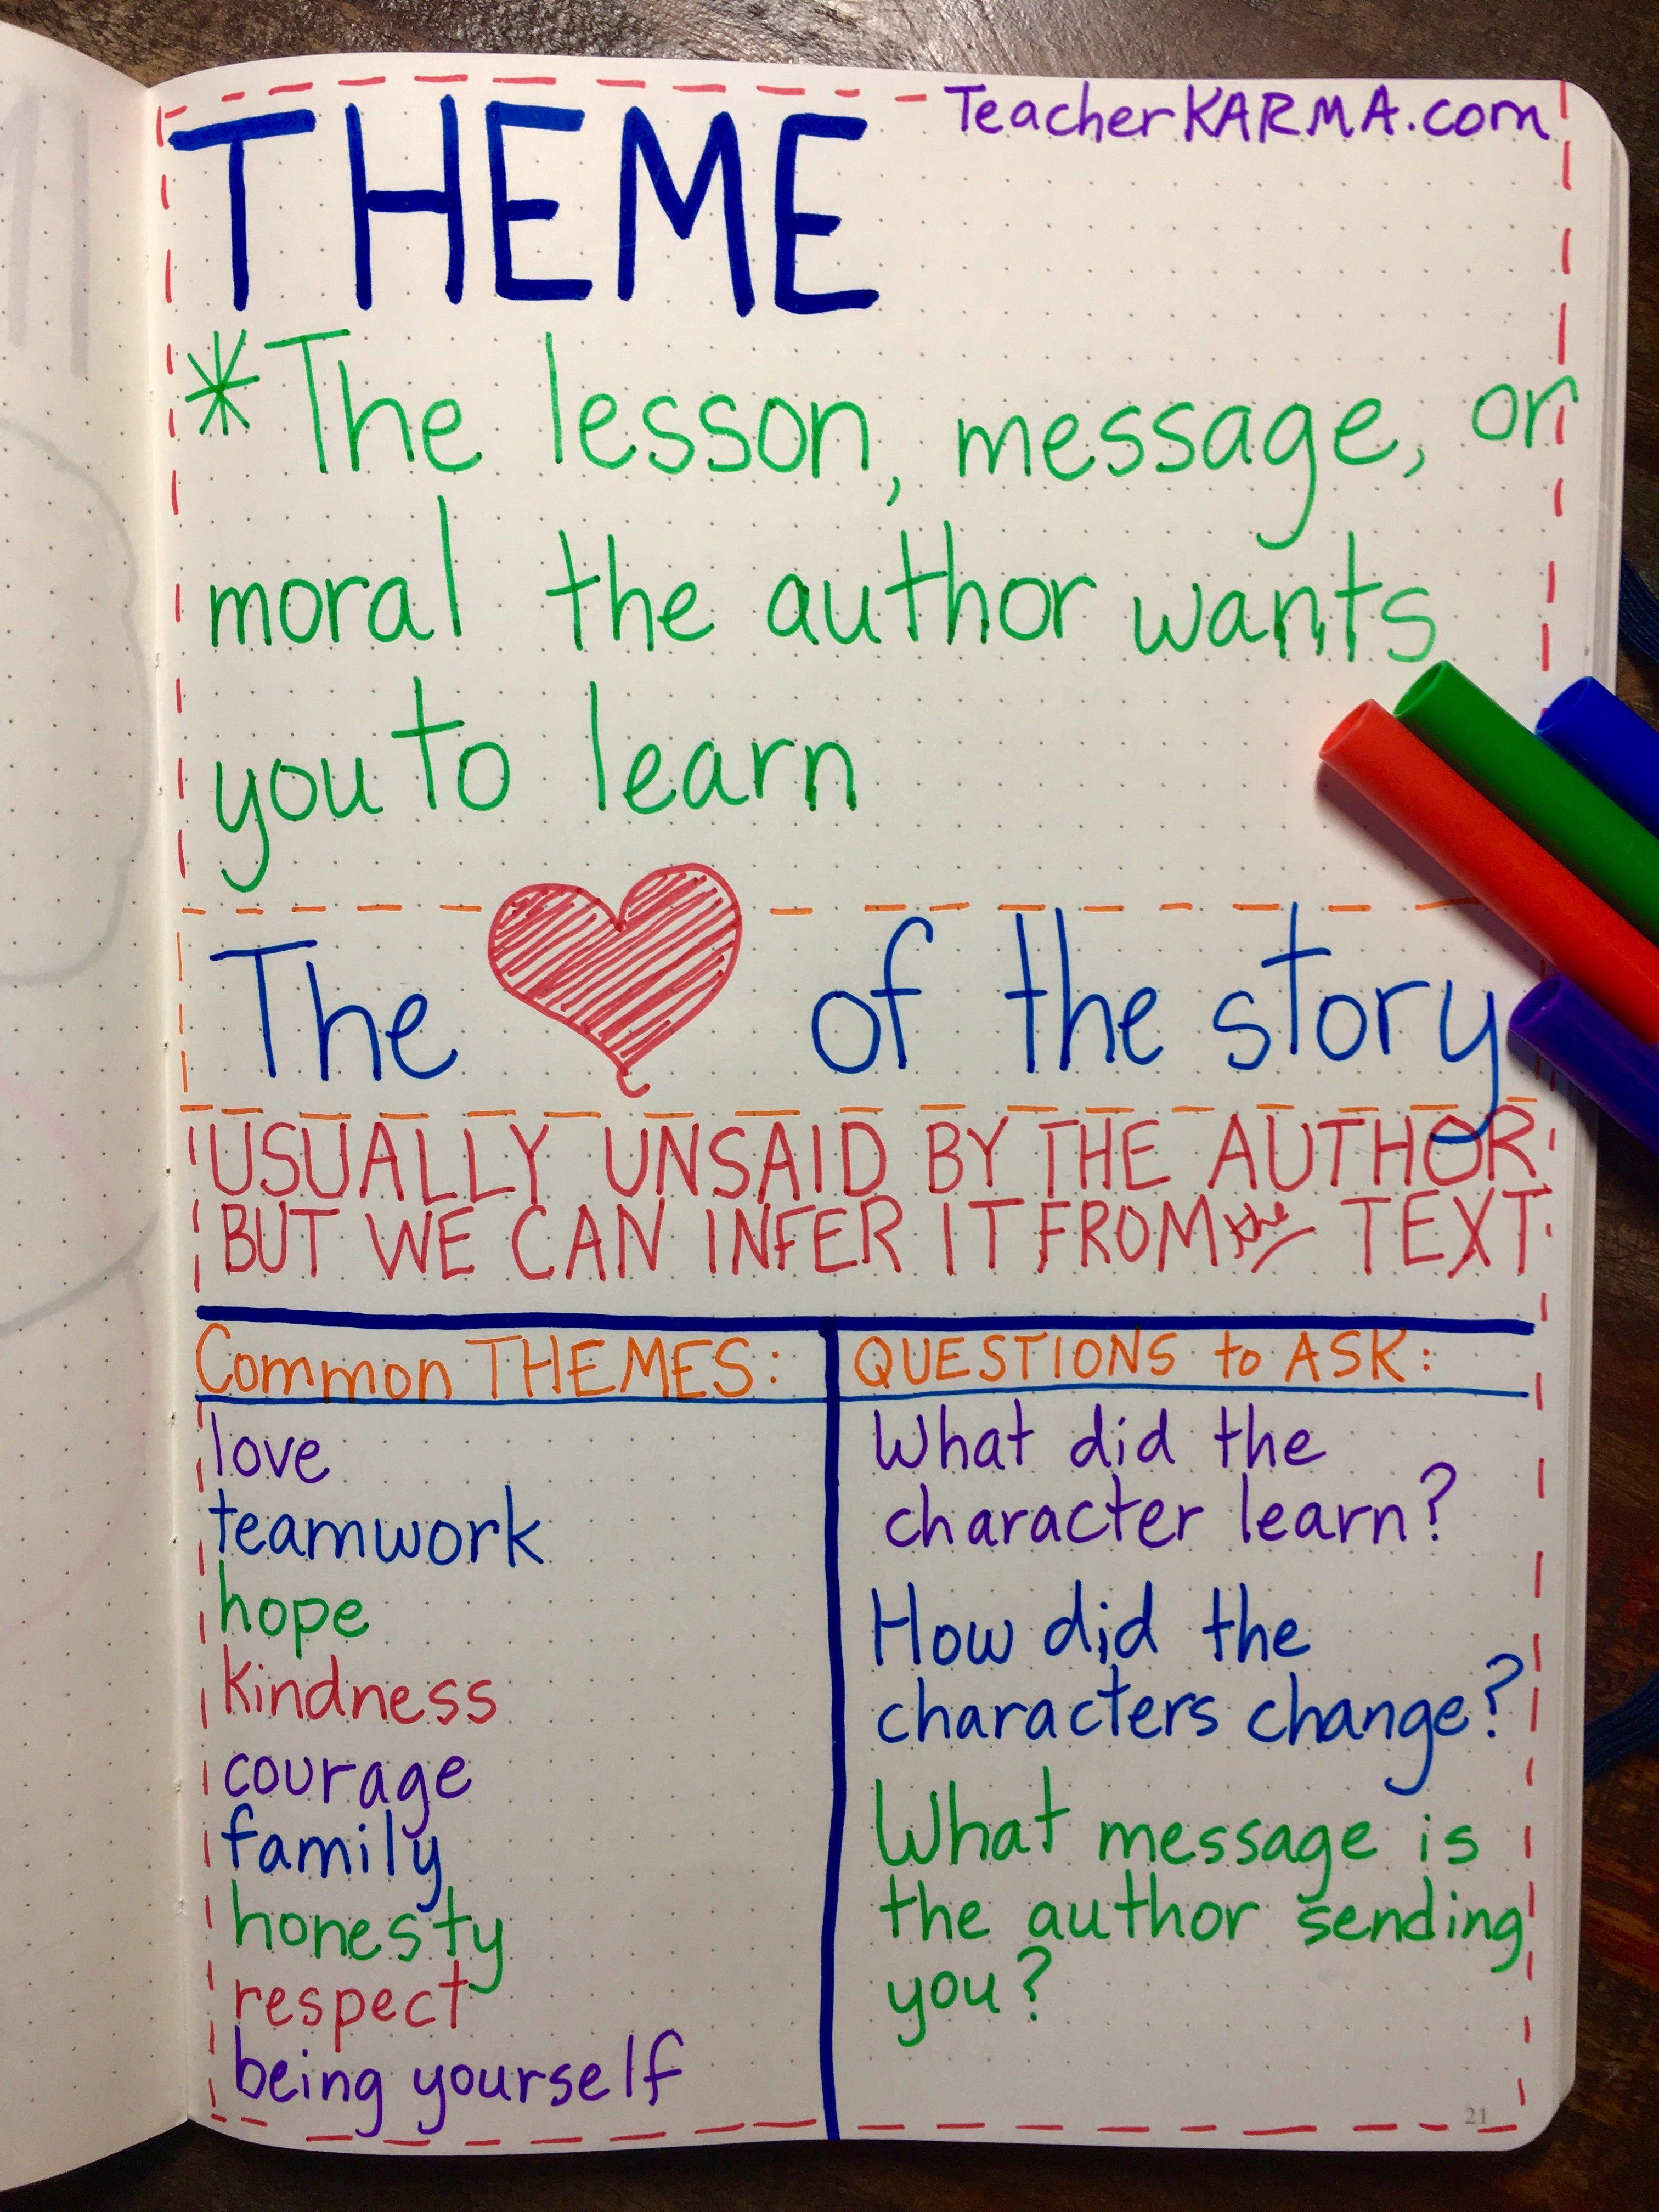 TeacherKARMA.com
THEME
*The lesson, message, or
moral the author wants
you to learn
The of the story
USUALLY UNSAID BY THE AUTHOR
BUT WE CAN INFER IT FROM the TEXT
Common THEMES:
love
teamwork
hope
kindness
courage
family
honesty
respect
being yourself
QUESTIONS to ASK:
What did the
character learn?
How did the
characters change?
What message is
the author sending
you?
21